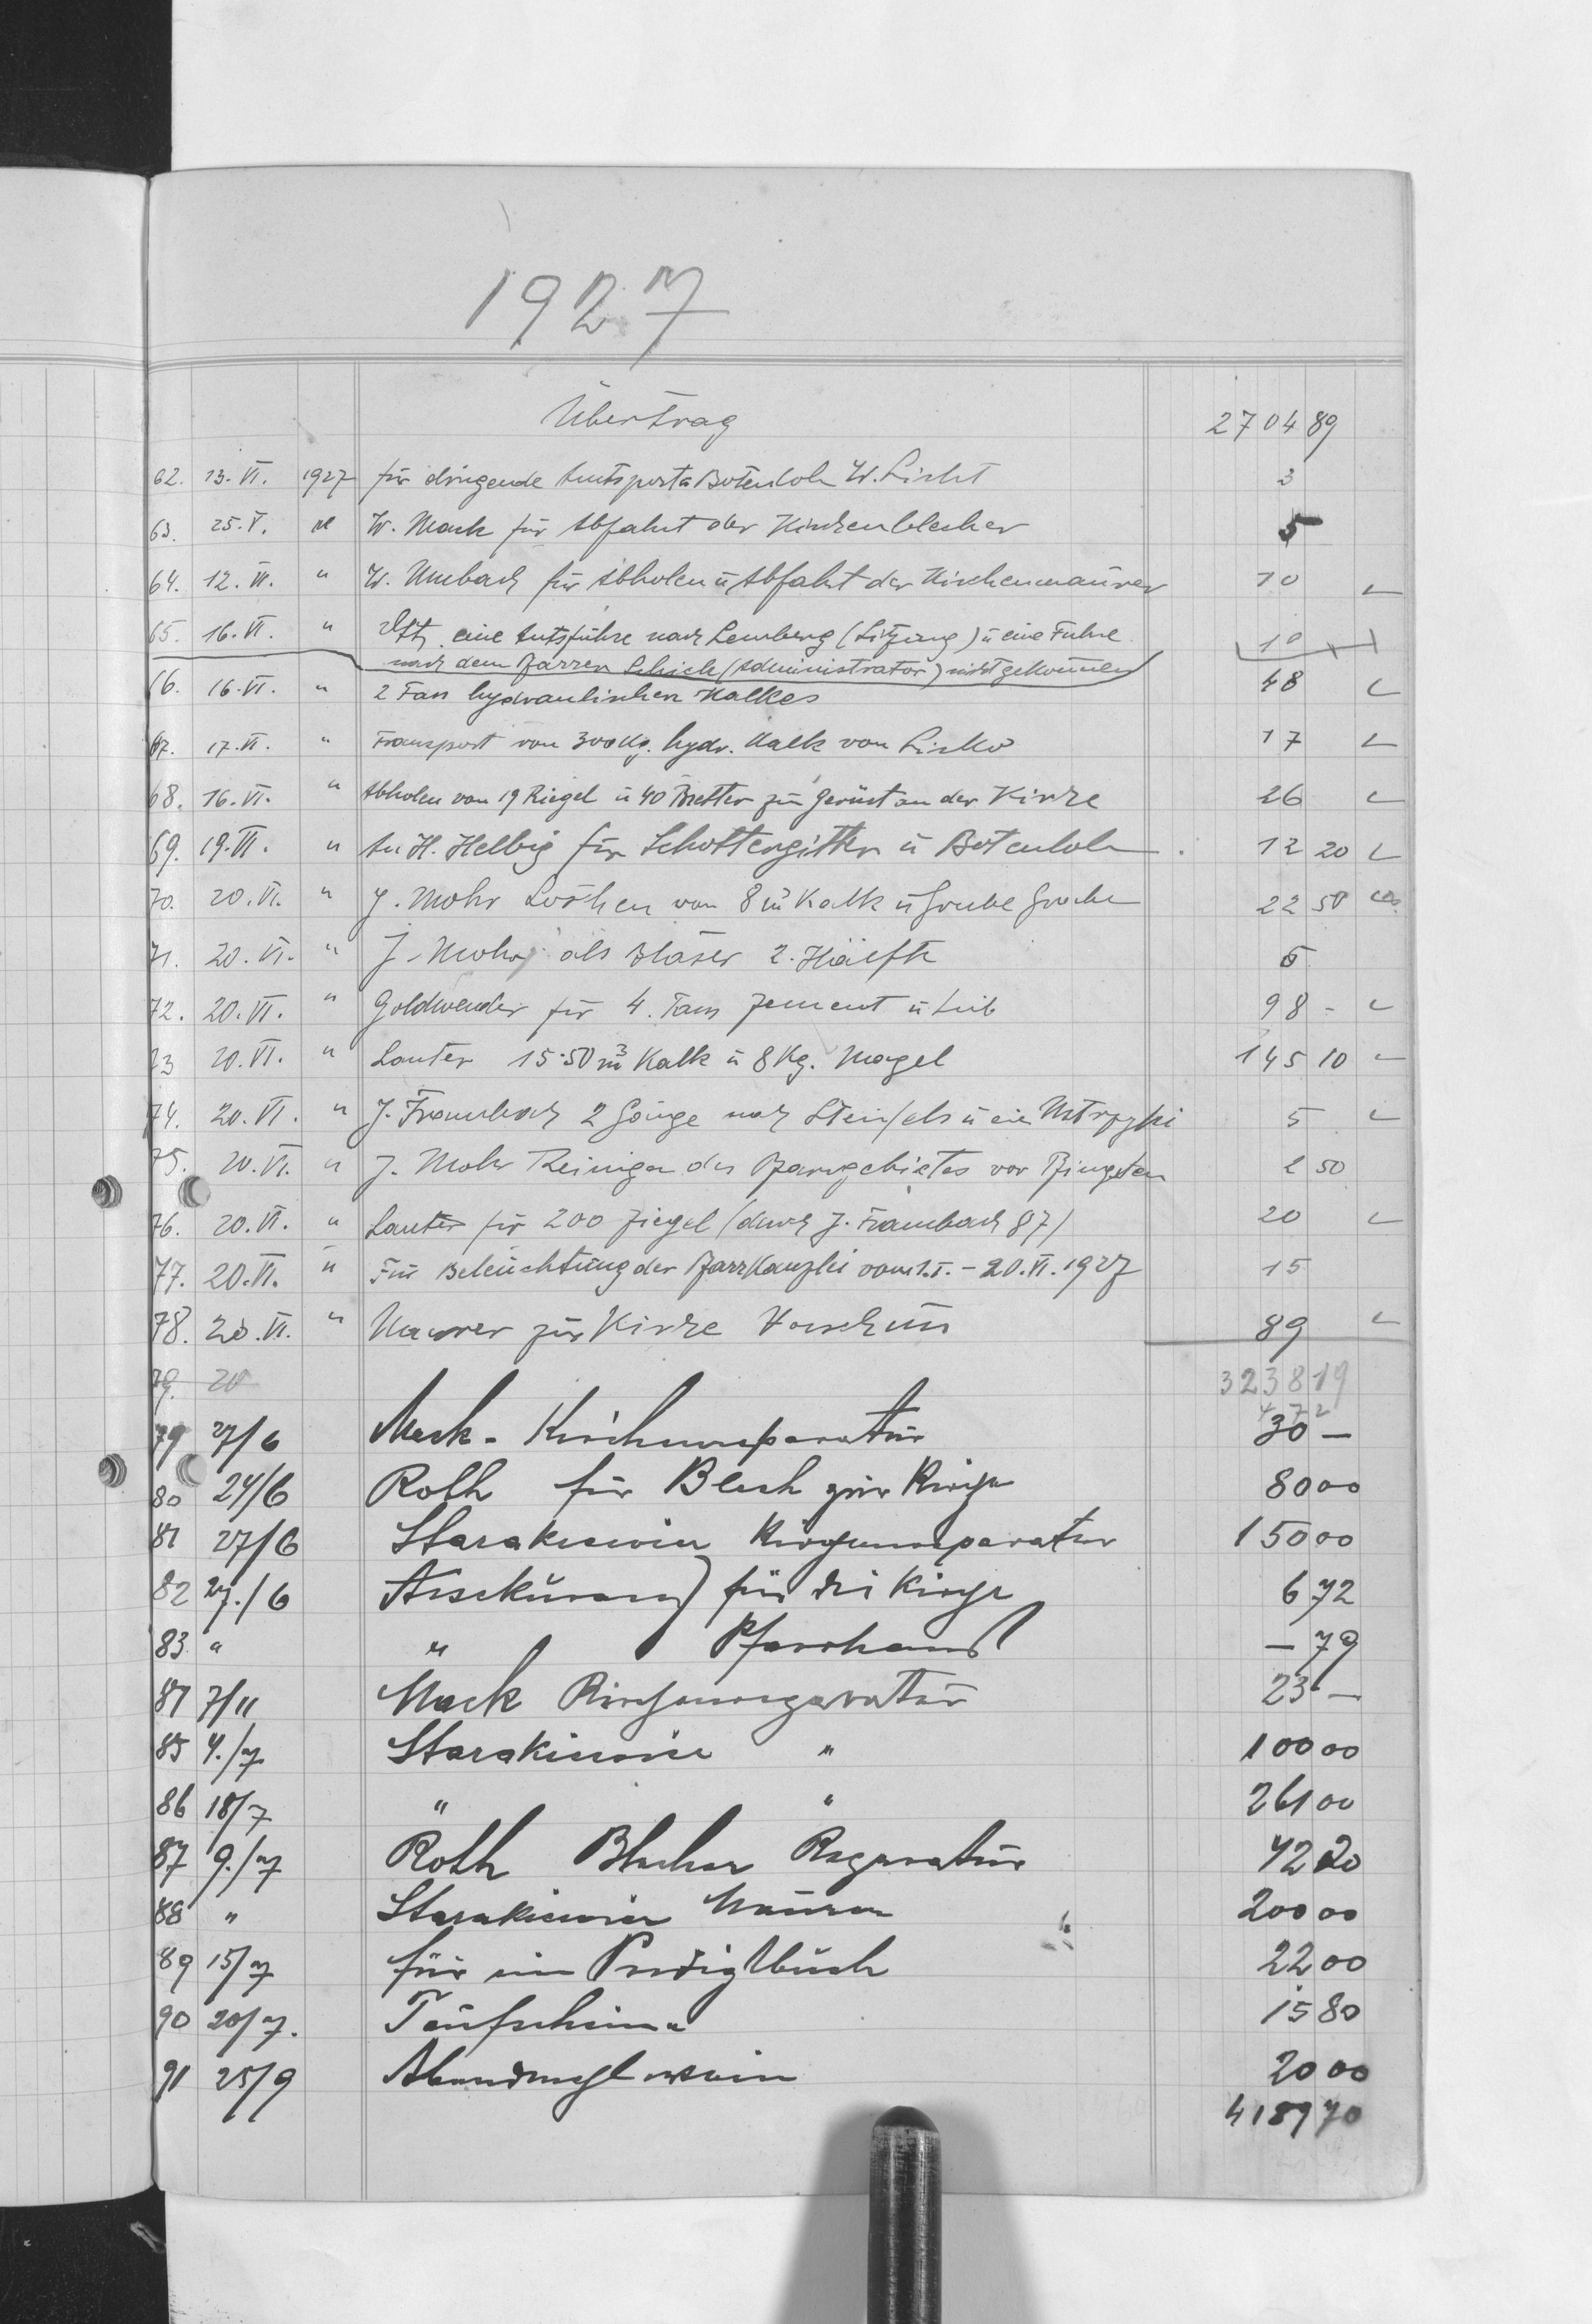 1927
Übertrag 2704 89
62. 13. VI. 1927 für dringende Amtsposta Botenlohn W. Licht 3
63. 25. V. " W. Mack für Abfahrt der Kirchenblecher 5
64. 12. VI. " W. Umbach für Abholen ü Abfahrt der Kirchenmaürer 10
65. 16. VI. " eine Amtsführe nach Lemberg (Sitzung) ü eine Fuhre 10
nach dem Pfarrer Schick (Administrator) nicht gekommen
66. 16. VI. " 2 Fass hydraulischen Kalkes 48
67. 17. VI. " Transport von 300 Kg. hydr. Kalk von Lisko 17
68. 16. VI. " Abholen von 19 Riegel ü 40 Bretter zür Gerüst an der Kirche 26
69. 19. VI. " An H. Helbig für Schottergitter ü Botenlohn 12 20
70. 20. VI. " J. Mohr Löschen von 8 m³ Kalk ü Grube 22 50
71. 20. VI. " J. Mohr als Bläser 2. Hälfte 5
72. 20. VI. " Goldwender für 4. Fass Zement ü 98 -
73 20. VI. " Lauter 15·50 m³ Kalk ü 8 Kg. Nagel 145 10
74. 20. VI. " J. Frambach 2 Gänge nach Steinfels ü ein Ustrzyki 5
75. 20. VI. " J. Mohr Reinigen des Pfarrgebietes vor Pfingsten 2 50
76. 20. VI. " Lauter für 200 Ziegel (durch J. Frambach 87) 20
77. 20. VI. " Für Beleüchtüng der Pfarrkanzlei vom 1. I. - 20. VI. 1927 15
78. 20. VI. " Maurer zür Kirche 89
79. 20 3238 19
472
79 27/6 Mack - Kirchenreparatür 30 -
80 24/6 Roth für Blech zür Kirche 80 00
81 27/6 Starakiewicz Kirchenreparatur 150 00
82 27./6 Assekuranz für die Kirche 6 72
83 " " Pfarrhaus - 79
84 7/11 Mack Kirchenreparatür 23 -
85 4./7 Starakiewicz " 100 00
86 18/7 " " 261 00
87 9./7 Roth Blecher Reparatür 42 20
88 " Starakiewicz Maürer 200 00
89 15/7 für ein Predigtbüch 22 00
90 20/7. Taüfscheine 15 80
91 25/9 Abendmahlwein 20 00
4189 70